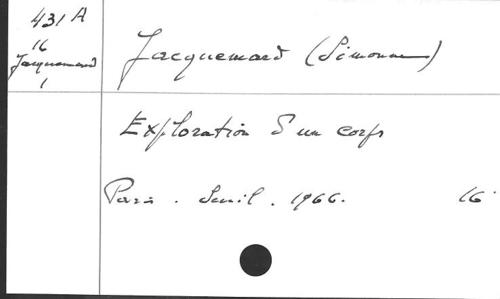 431 A
16
Jacquemard
1
Jacquemard (Simonne)
Exploration d'un corps
Paris. Seuil. 1966. 16°